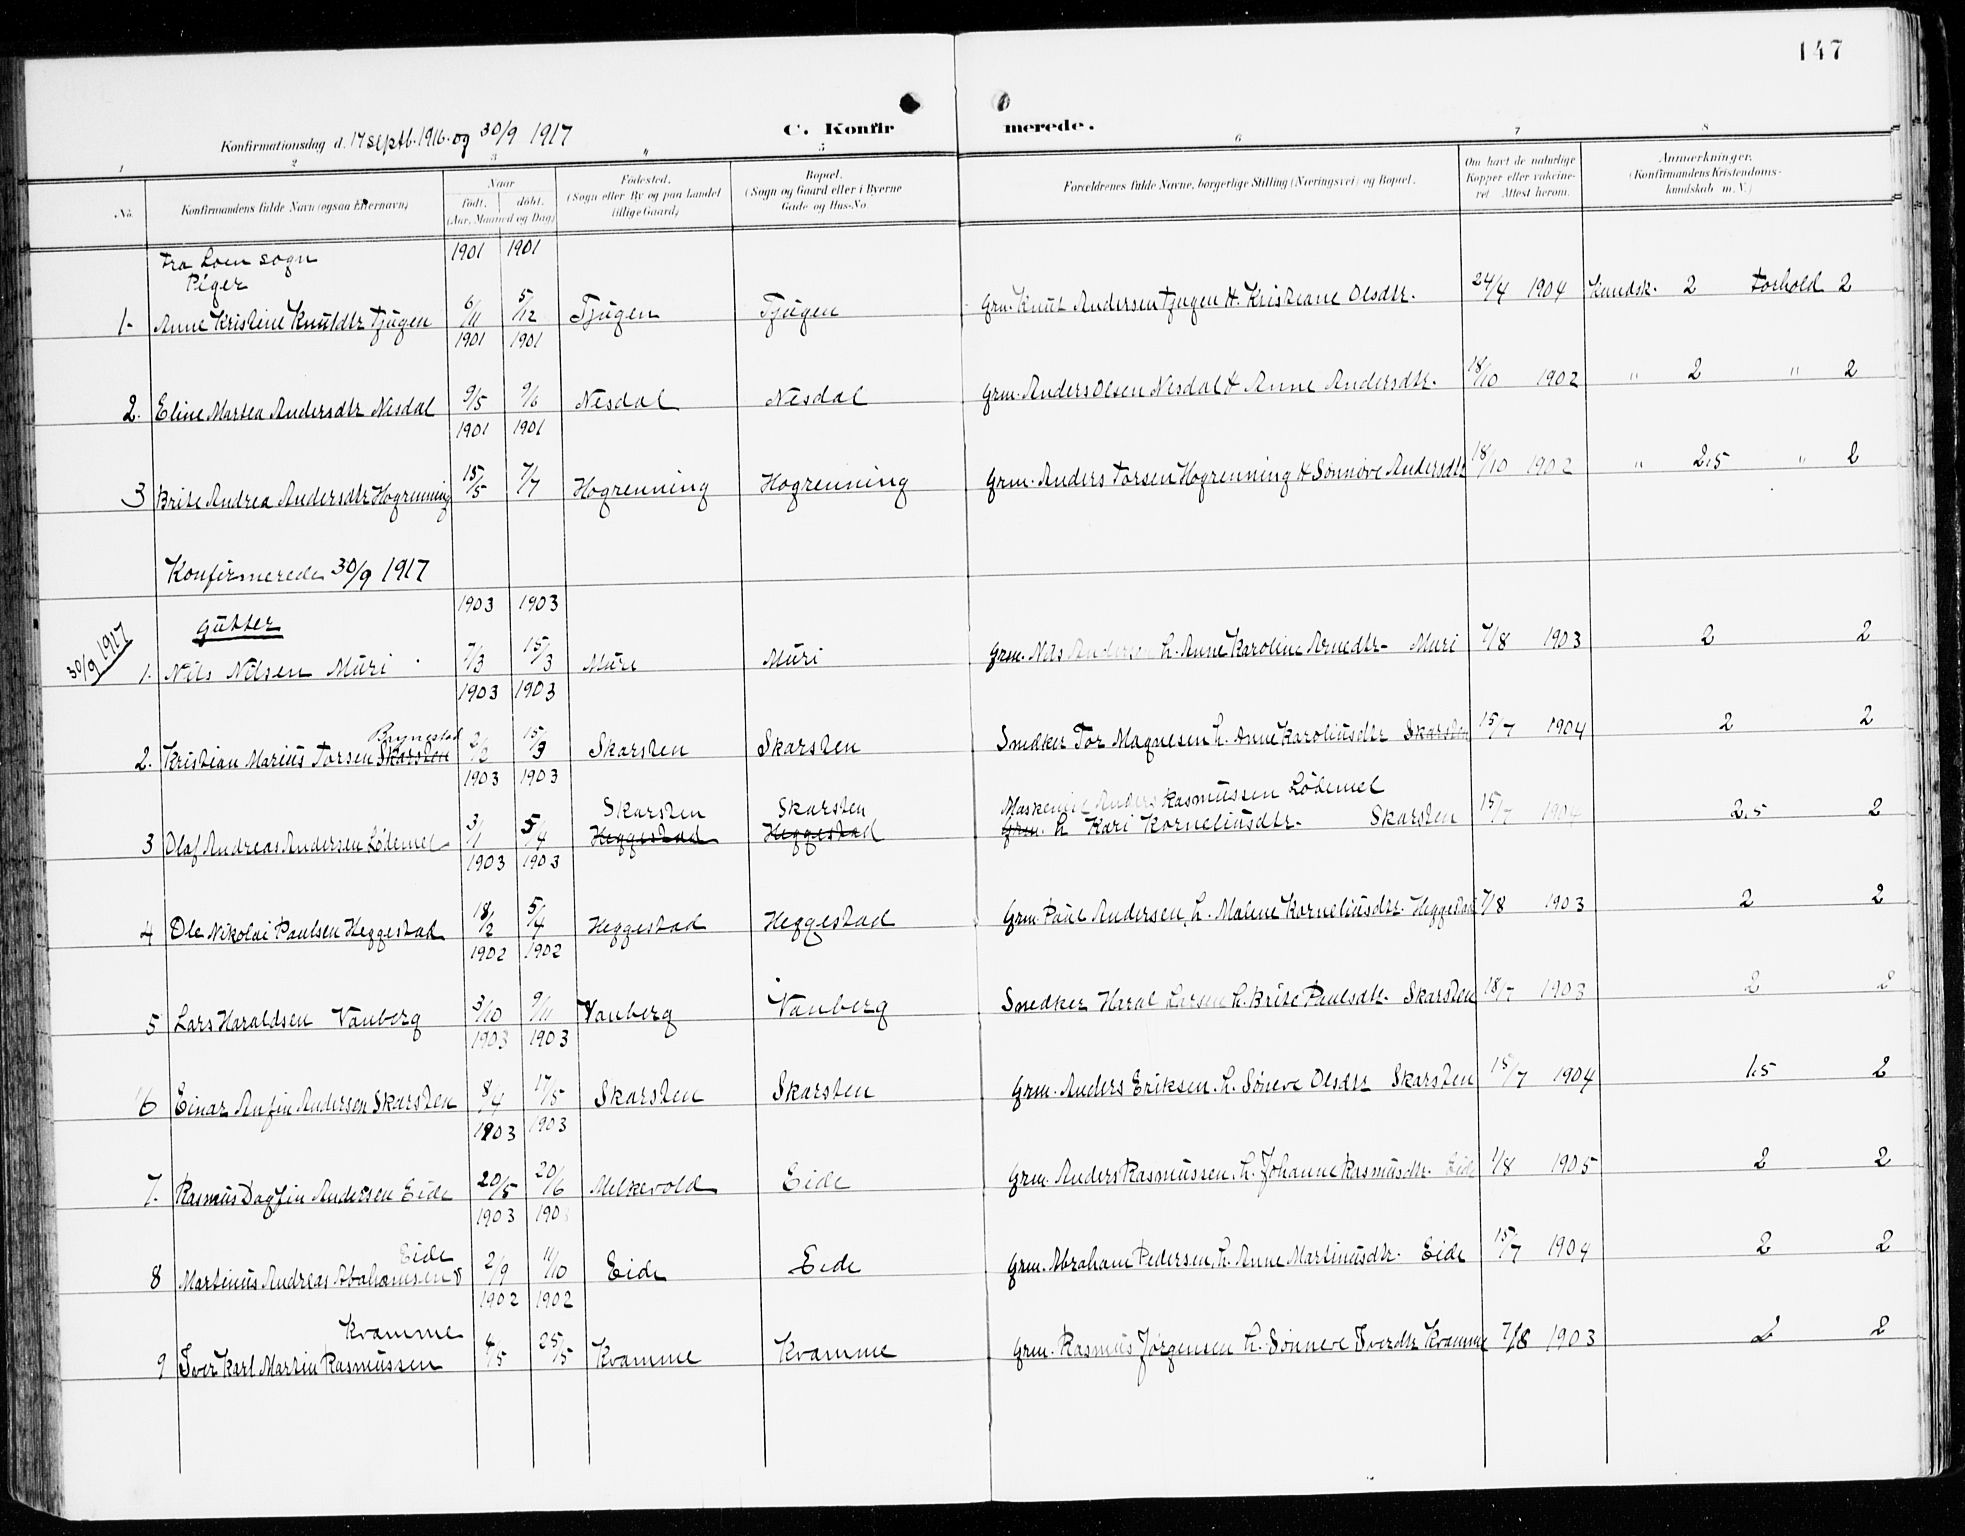 147
Konfirmationsdag d. 17 septb. 1916. og 30/9 1917 C. Konfirmerede.
1 2 3 " 5 6 7 8
No. Konfirmandens fulde Navn (ogsaa Efternavn) Naar født. døbt. (Aar, Maaned og Dag) Fødested. (Sogn eller By og paa Landet tillige Gaard) Bopæl. (Sogn og Gaard eller i Byerne Gade og Hus-No. Forældrenes fulde Navne, borgerlige Stilling (Næringsvei) og Bopæl. Om havt de naturlige Kopper eller vakcineret. Attest herom. Anmærkninger. (Konfirmandens Kristendomskundskab m. V.)
Fra Loen sogn 1901 1901
Piger
1. Anne Kristine Knutdtr Tjugen 6/11 5/12 Tjugen Tjugen Grm. Knut Andersen Tjugen H. Kristiane Olsdtr. 24/4 1904 Kundsk. 2 Forhold 2
1901 1901
2. Eline Martea Andersdtr Nesdal 9/5 9/6 Nesdal Nesdal Grm. Anders Olsen Nesdal H Anne Andersdtr. 18/10 1902 " 2 " 2
1901 1901
3 Brite Andrea Andersdtr Hogrenning 15/5 7/7 Hogrenning Hogrenning Grm. Anders Torsen Hogrenning H Sønnøve Andersdtr 18/10 1902 " 2,5 " 2
Konfirmerede 30/9 1917
1903 1903
Gutter
30/9 1917
1. Nils Nilsen Muri 7/3 15/3 Muri Muri Grm. Nils Andersen h. Anne Karoline Arnedtr- Muri 7/8 1903 2 2
1903 1903
Brynestad
2. Kristian Marius Torsen Skarsten 2/2 15/3 Skarsten Skarsten Snedker Tor Magnesen h. Anne Karoliusdtr Skarsten 15/7 1904 2 2
1903 1903
Skarsten Skarsten Maskenist Anders Rasmussen Lødemel
3 Olaf Andreas Andersen Lødemel 3/1 5/4 Heggestad Heggestad Grm. h Kari Korneliusdtr. Skarsten 15/7 1904 2,5 2
1903 1903
4 Ole Nikolai Paulsen Heggestad 18/2 5/4 Heggestad Heggestad Grm. Paul Andersen, h. Malene Korneliusdtr. Heggestad 7/8 1903 2 2
1902 1902
5 Lars Haraldsen Vanberg 3/10 9/11 Vanberg Vanberg Snedker Haral Larsen h. Brite Paulsdtr. Skarsten 18/7 1903 2 2
1903 1903
6 Einar Anfin Andersen Skarsten 8/4 17/5 Skarsten Skarsten Grm. Anders Eriksen. h. Søneve Olsdtr Skarsten 15/7 1904 1,5 2
1903 1903
7. Rasmus Dagfin Andersen Eide 20/5 20/6 Melkevold Eide Grm. Anders Rasmussen. h. Johanne Rasmusdtr. Eide 1/8 1905 2 2
1903 1903
Eide
8 Martinus Andreas Abahamsen 2/9 11/10 Eide Eide Grm. Abraham Pedersen, h. Anne Martinusdtr. Eide 15/7 1904 2 2
1902 1902
Kvamme
9 Iver Karl Martin Rasmussen 4/5 25/5 Kvamme Kvamme Grm. Rasmus Jørgensen h. Sønneve Iverdtr Kvamme 7/8 1903 2 2